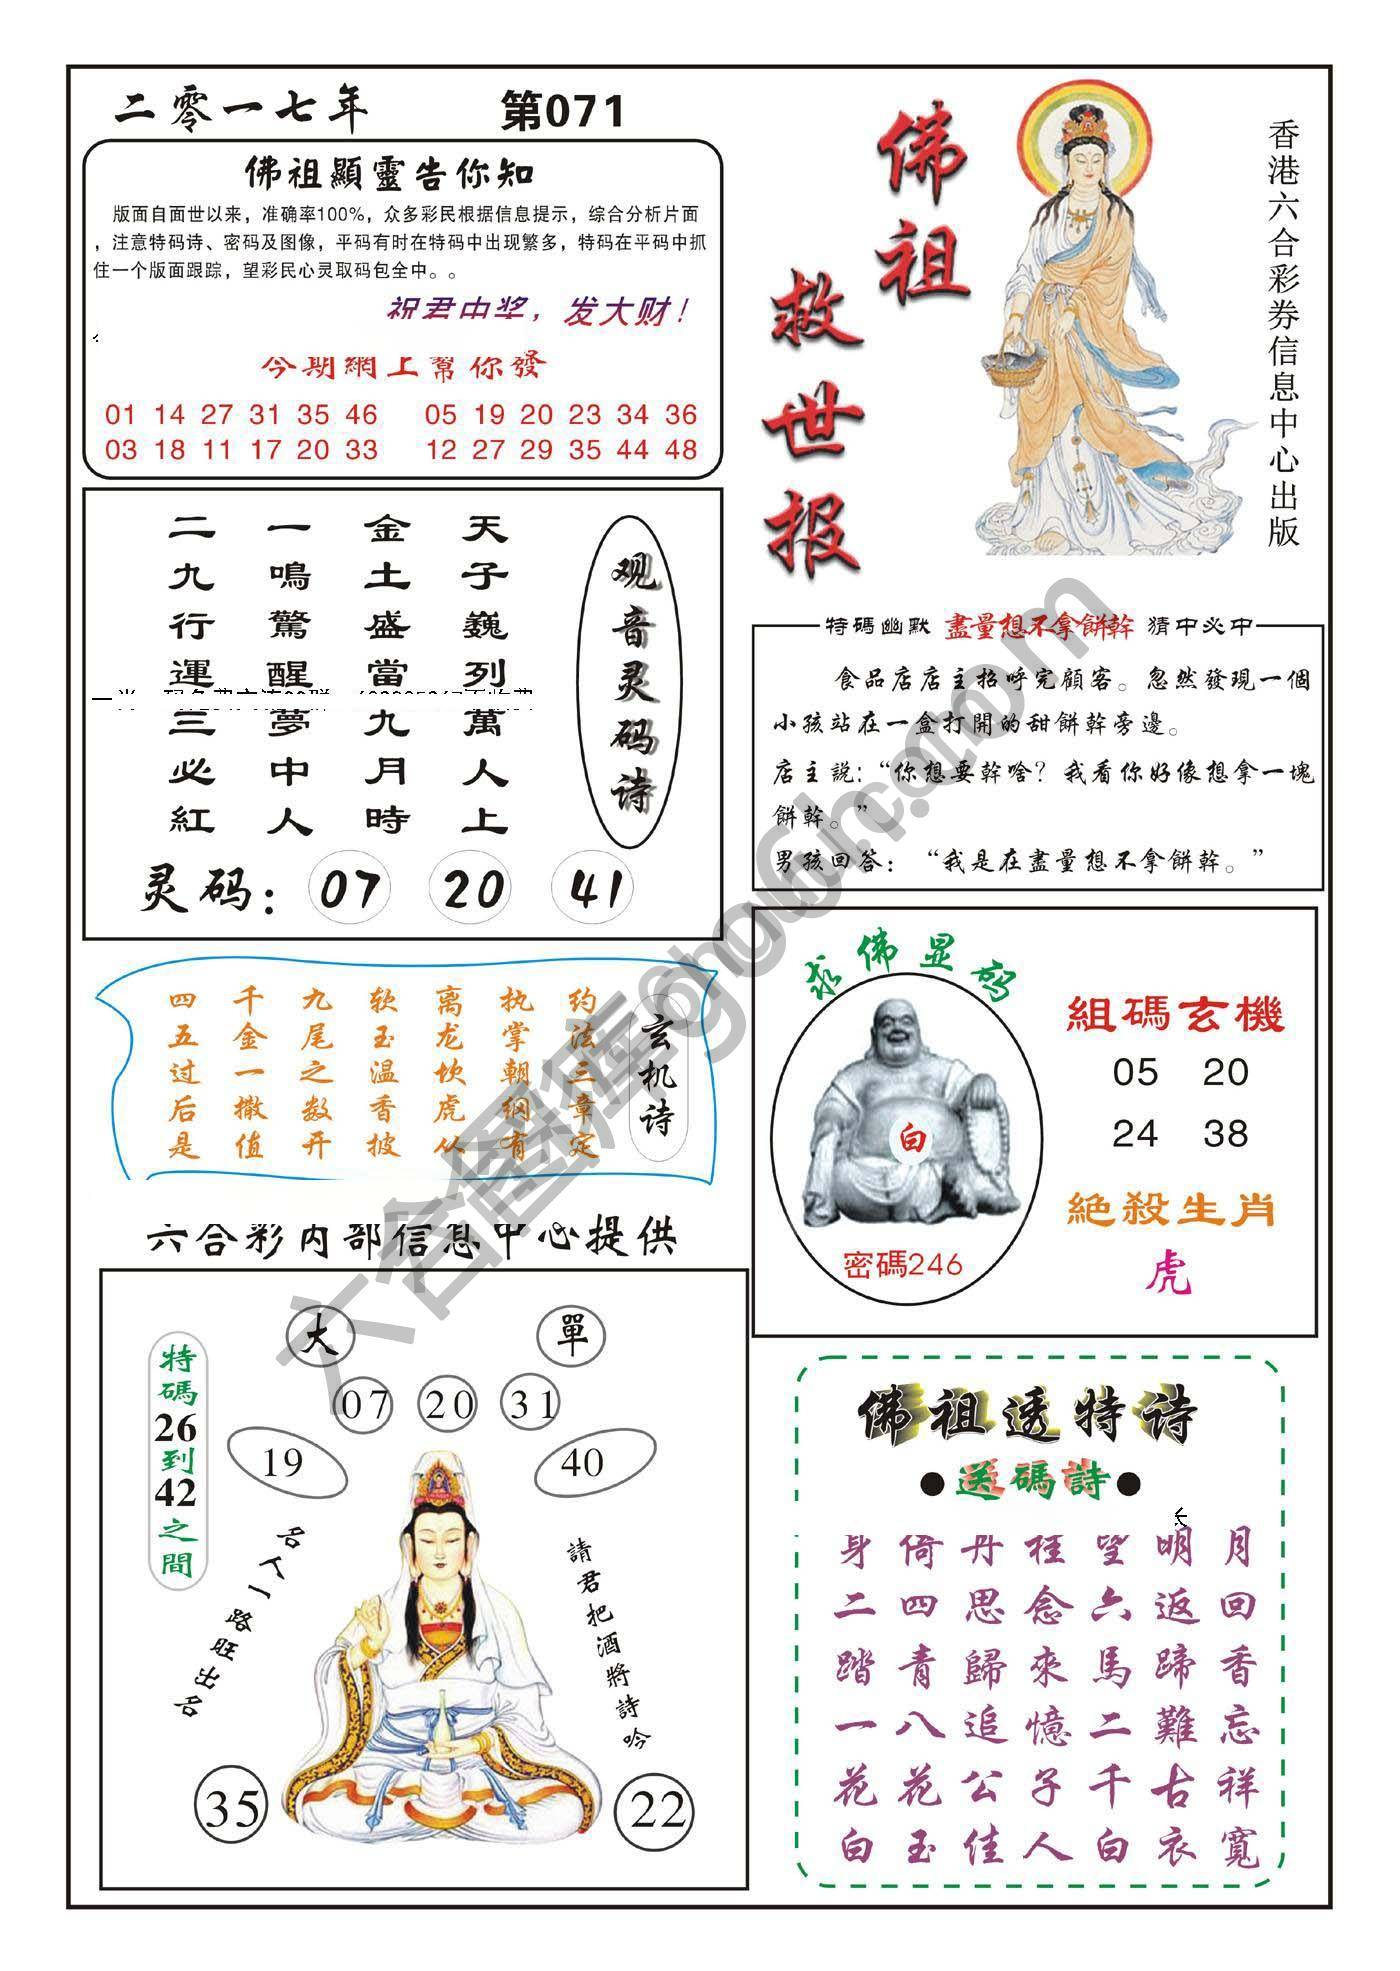 二零一七年 第071
佛祖顯靈告你知
版面自面世以来，准确率100%，众多彩民根据信息提示，综合分析片面
，注意特码诗、密码及图像，平码有时在特码中出现繁多，特码在平码中抓
住一个版面跟踪，望彩民心灵取码包全中。。
祝君中奖，发大财！
今期網上幫你發
01 14 27 31 35 46 05 19 20 23 34 36
03 18 11 17 20 33 12 27 29 35 44 48
佛祖
救世报
香港六合彩券信息中心出版
观音灵码诗
天子巍列萬人上
金土盛當九月時
一鳴驚醒夢中人
二九行運三必紅
灵码：07 20 41
特碼幽默 盡量想不拿餅幹 猜中必中
食品店店主招呼完顧客。忽然發現一個
小孩站在一盒打開的甜餅幹旁邊。
店主説：“你想要幹啥？我看你好像想拿一塊
餅幹。”
男孩回答：“我是在盡量想不拿餅幹。”
玄机诗
约法三章定
执掌朝纲有
离龙坎虎从
软玉温香披
九尾之数开
千金一撒值
四五过后是
求佛显码
白
密碼246
組碼玄機
05 20
24 38
絕殺生肖
虎
六合彩内部信息中心提供
特碼26到42之間
大 單
07 20 31
19 40
名人一路旺出名
請君把酒將詩吟
35 22
佛祖透特诗
●送碼詩●
身倚丹桂望明月
二四思念六返回
踏青歸來馬蹄香
一八追憶二難忘
花花公子千古祥
白玉佳人白衣寬
六合图库